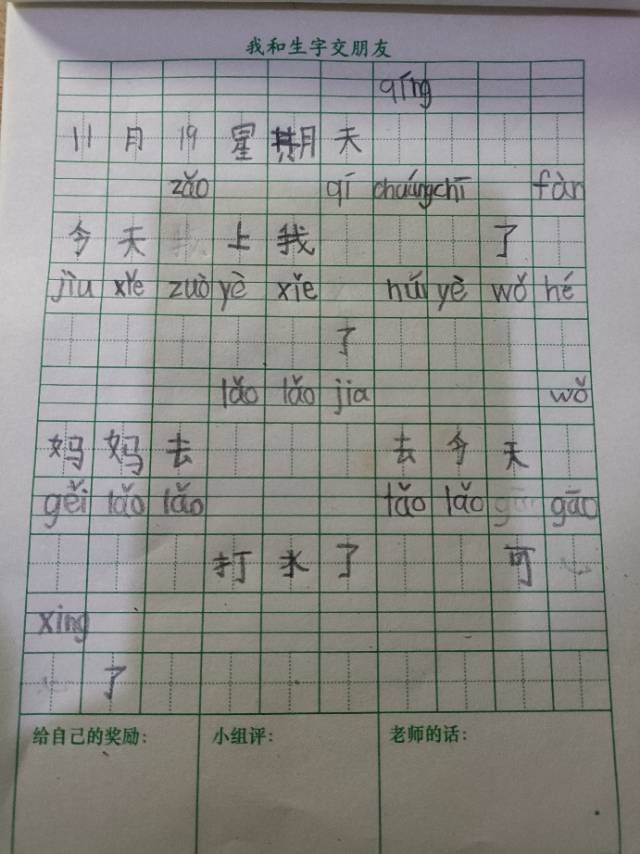 我和生字交朋友
qíng
11月19星期天
zǎo qí chuángchī fàn
今天上我了
jiu xiě zuò yè xiě huí yè wǒ hé
了
lǎo lǎo jia wǒ
妈妈去去今天
gěi lǎo lǎo lǎo lǎo gāo
打水了可
xing
了
给自己的奖励： 小组评： 老师的话：